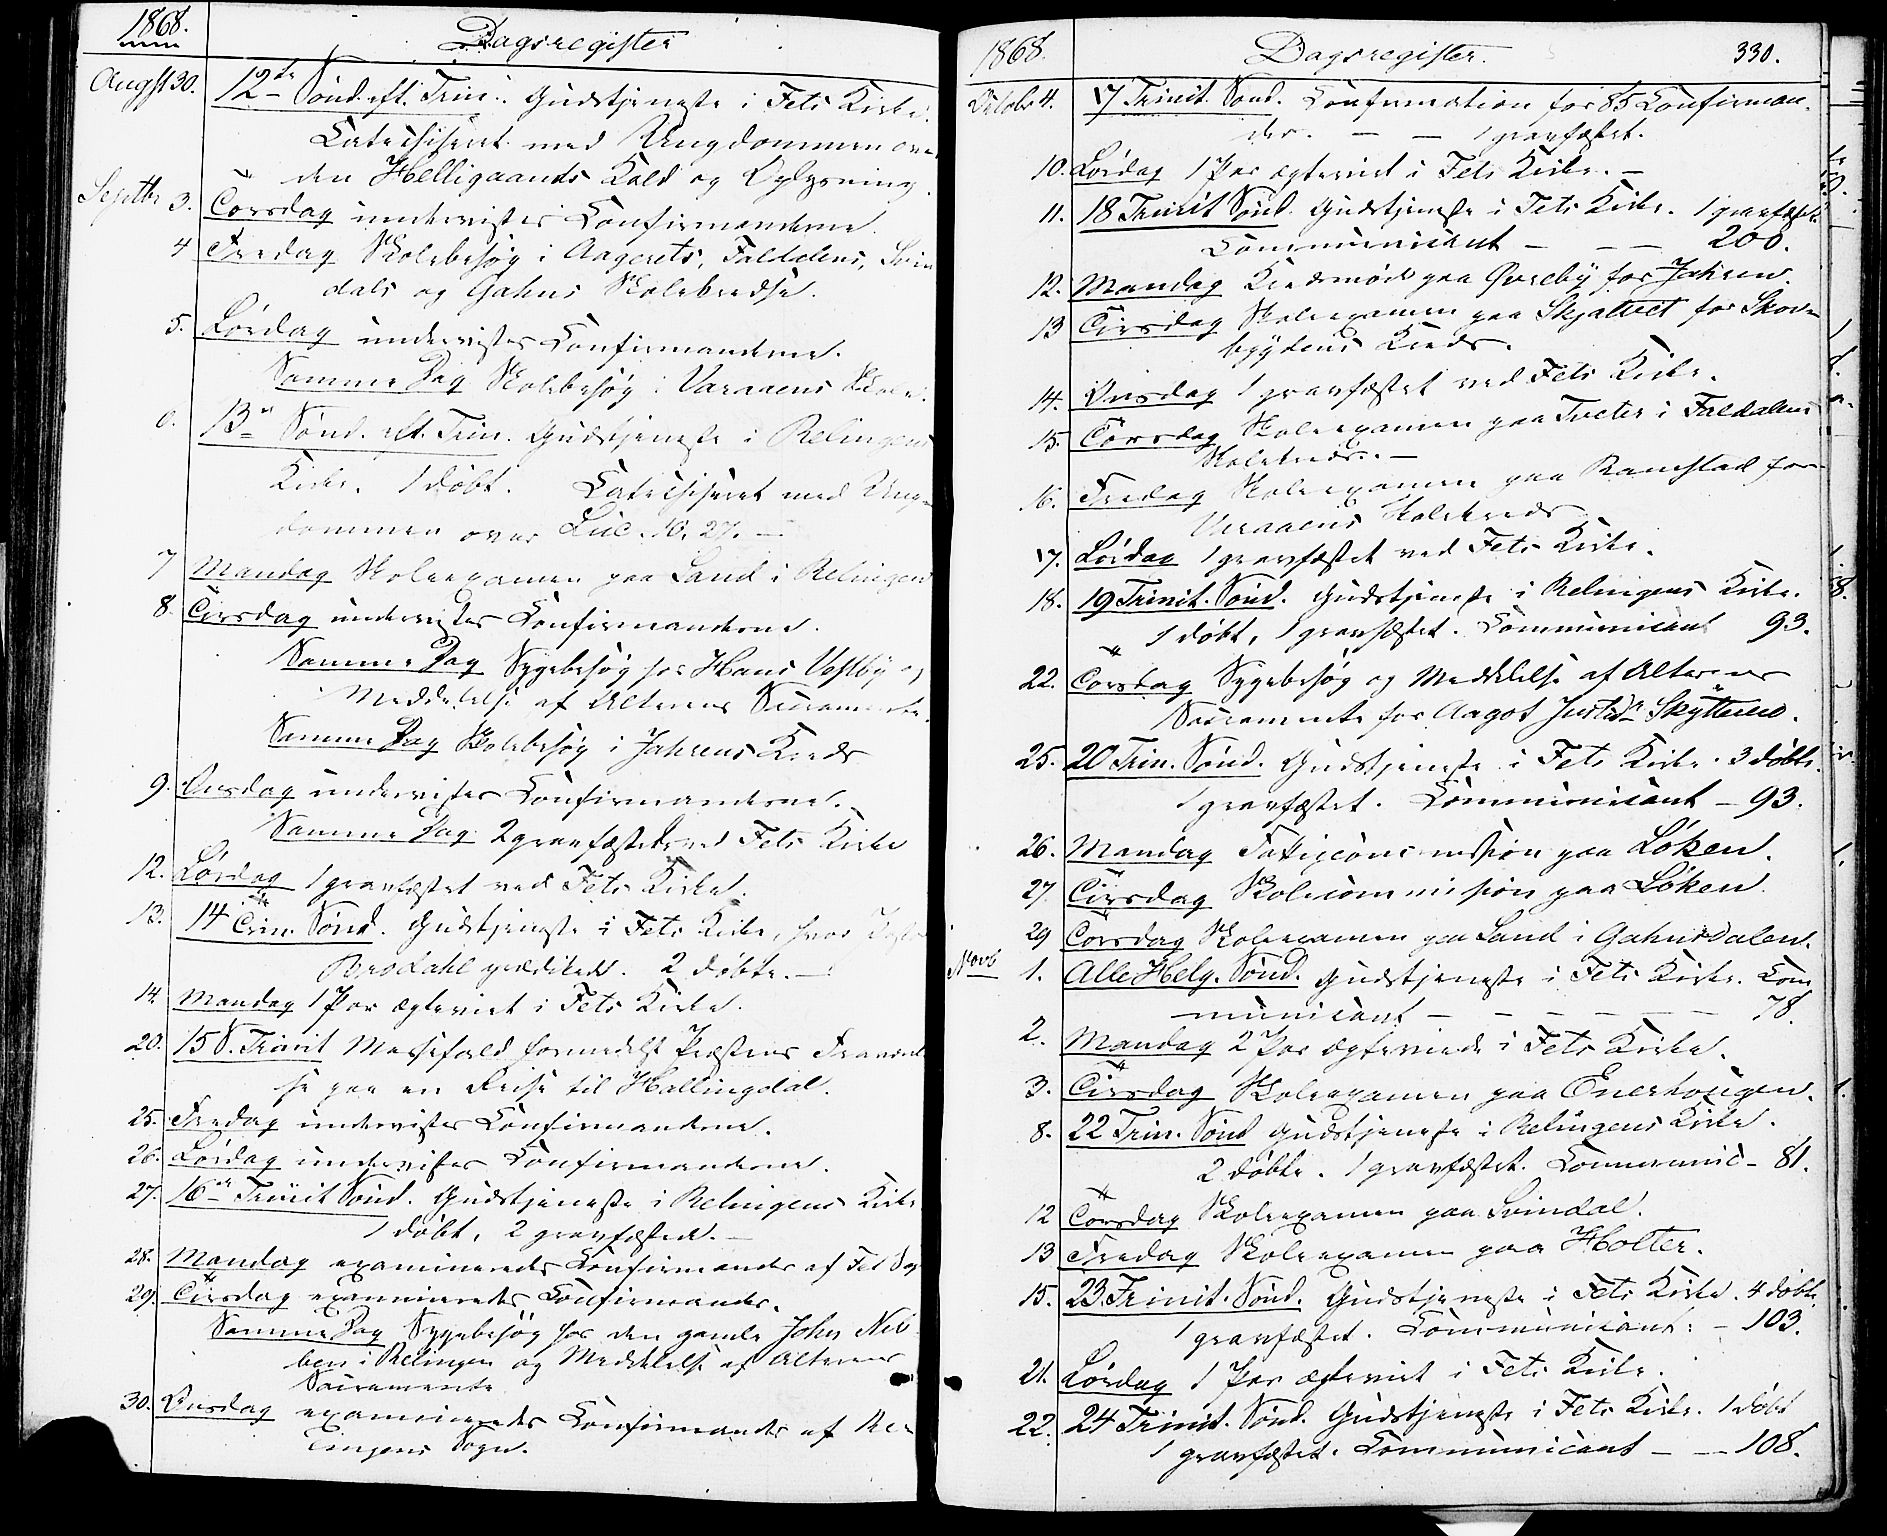 1868.
Dagsregister
Augst 30. 12te Sønd. eft. Trin. Gudstjeneste i Fets Kirke.
Catechiseret med Ungdommen over
den Helligaands Kald og Oplysning.
Septbr 3. Torsdag underviste Confirmanderne.
4 Fredag Skolebesøg i Aagerets, Faldalens, Svin
dals og Gahns Skolekredse.
5. Lørdag underviste Confirmanderne.
Samme Dag Skolebesøg i Varaaens Skole.
6. 13de Sønd. eft. Trin. Gudstjeneste i Relingens
Kirke. 1 døbt. Catechiseret med Ung-
dommen over Luc. 10, 27. —
7 Mandag Skoleexamen paa Sand i Relingen
8. Tirsdag underviste Confirmanderne.
Samme Dag Sygebesøg hos Hans Vestby og
Meddelelse af Alterens Sacramente.
Samme Dag Skolebesøg i Jahrens Kreds
9. Onsdag underviste Confirmanderne.
Samme Dag 2 gravfæstede ved Fets Kirke
12. Lørdag 1 gravfæstet ved Fets Kirke.
13. 14 Trin. Sønd. Gudstjeneste i Fets Kirke, hvor
Brodahl prædikede. 2 døbte. —
14. Mandag 1 Par ægteviet i Fets Kirke.
20. 15 S. Trinit Messefald formedelst Præstens Fraværel
se paa en Reise til Hallingdal.
25. Fredag underviste Confirmanderne.
26. Lørdag underviste Confirmanderne.
27. 16de Trinit Sønd. Gudstjeneste i Relingens Kirke
1 døbt, 2 gravfæstede. —
28. Mandag examineredes Confirmander af Fet Sogn
29. Tirsdag examineredes Confirmander.
Samme Dag Sygebesøg hos den gamle John Neb
ben i Relingen og Meddelelse af Alterens
Sacramente
30. Onsdag examineredes Confirmander af Re-
lingens Sogn.
1868.
Dagsregister.
330.
Octobr 4. 17 Trinit. Sønd. Confirmation for 85 Confirman-
der. — — 1 gravfæstet.
10. Lørdag 1 Par ægteviet i Fets Kirke. —
11. 18 Trinit Sønd. Gudstjeneste i Fets Kirke. 1 gravfæstet
Communicant — — — 200.
12. Mandag Kredsmøde paa Qvæby for Jahren.
13 Tirsdag Skoleexamen paa Skjatvet for Skov-
bygdens Kreds.
14. Onsdag 1 gravfæstet ved Fets Kirke.
15. Torsdag Skoleexamen paa Tveter i Faldalens
Skolekreds. —
16. Fredag Skoleexamen paa Ramstad for
Varaaens Skolekreds
17. Lørdag 1 gravfæstet ved Fets Kirke.
18. 19 Trinit. Sønd. Gudstjeneste i Relingens Kirke.
1 døbt, 1 gravfæstet. Communicant 93.
22. Torsdag Sygebesøg og Meddelelse af Alterens
Sacramente for Aagot Justsdr Skytteren.
25. 20 Trin. Sønd. Gudstjeneste i Fets Kirke. 3 døbte.
1 gravfæstet. Communicant — 93.
26. Mandag Fattigcommission paa Løken.
27. Tirsdag Skolecommission paa Løken.
29 Torsdag Skoleexamen paa Sand i Gahnsdalen.
Novb 1. Alle Helg. Sønd. Gudstjeneste i Fets Kirke. Com
municant — — — — — — 78.
2. Mandag 2 Par ægteviede i Fets Kirke.
3. Tirsdag Skoleexamen paa Enerhougen.
8. 22 Trin. Sønd Gudstjeneste i Relingens Kirke.
2 døbte. 1 gravfæstet. Communic — 81.
12 Torsdag Skoleexamen paa Svindal.
13 Fredag Skoleexamen paa Holter.
15. 23. Trinit. Sønd. Gudstjeneste i Fets Kirke. 4 døbte.
1 gravfæstet. Communicant: — 103.
21. Lørdag 1 Par ægteviet i Fets Kirke.
22. 24 Trinit. Sønd. Gudstjeneste i Fets Kirke. 1 døbt
1 gravfæstet. Communicant — — 108.